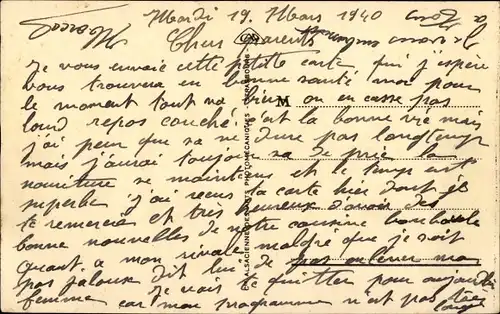 Mardi 19. Mars 1940
Chers Parents
Je vous envoie cette petite carte qui j'espère
vous trouvera en bonne santé moi pour
le moment tout va bien on en casse pas
lourd repos couché c'at la bonne vie mais
j'ai peur que sa ne dure pas longtemp
mais j'aurai toujour sa de prie la
nouriture se maintens et le temp est
superbe j'ai recus ta carte hier dont je
te remercie et très heureux d'avoir des
bonne nouvelles de notre cousine
quant a mon rivale malgré que je soit
pas jaloux dit lui de pas enlever ma
femme car mon programme n'at pas
Je vais te quitter pour aujourdui
ALSACIENNE DES ARTS PHOTOMECANIQUES STRASBOURG
M